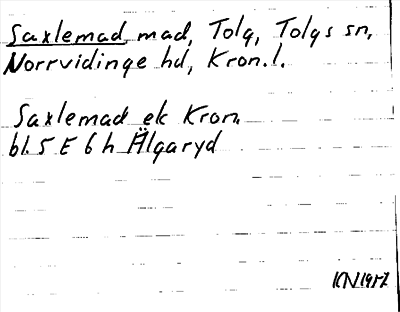 Saxlemad, mad, Tolg, Tolgs sn,
Norrvidinge hd, Kron.l.
Saxlemad ek Kron.
bl. 5 E 6 h Älgaryd